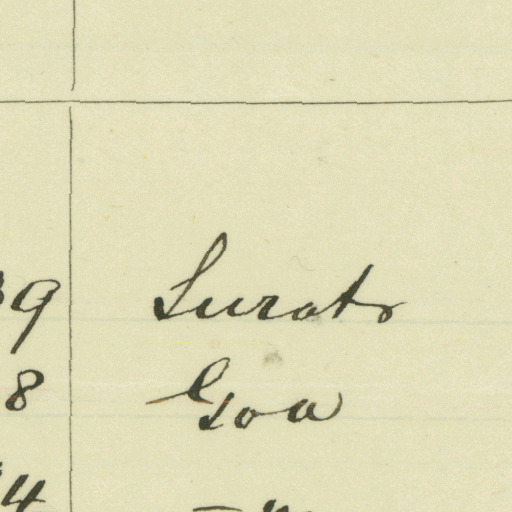 39 Surat
8 Goa
4 "